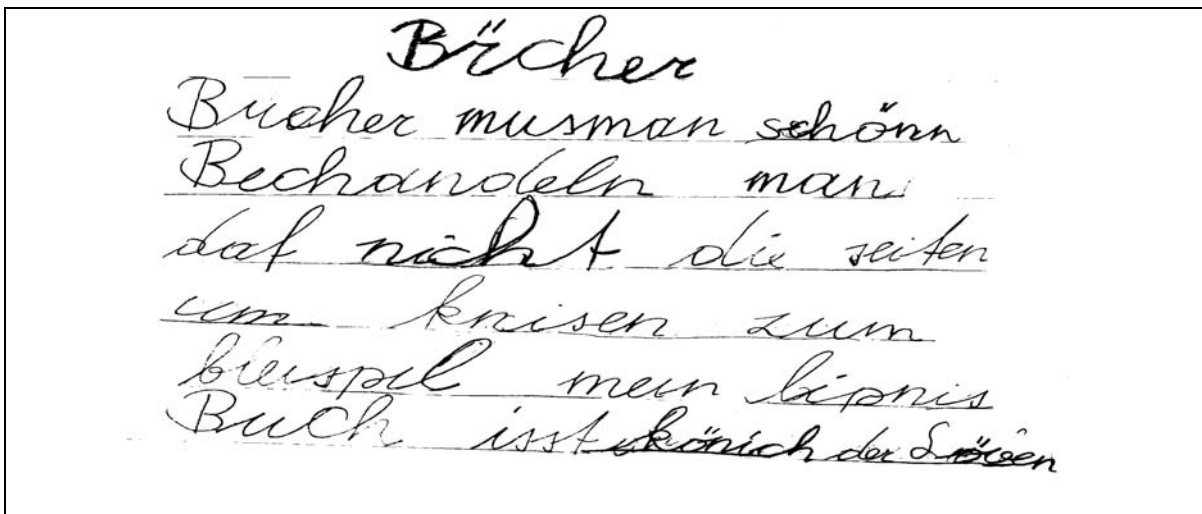 Bücher
Bucher musman schönn
Bechandeln man
daf nicht die seiten
um knisen zum
bleispil mein lipnis
Buch isst könich der Löwen